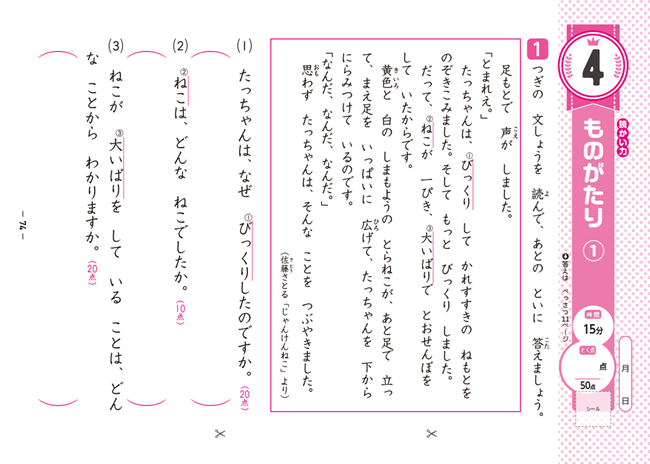 4
読かい力
ものがたり ①
●答えは べっさつ11ページ
時間
15分
とく点
点
50点
シール
月 日
1 つぎの 文しょうを 読んで、あとの といに 答えましょう。
足もとで 声が しました。
「とまれえ。」
たっちゃんは、①びっくり して かれすすきの ねもとを
のぞきこみました。そして もっと びっくり しました。
だって、②ねこが 一ぴき、③大いばりで とおせんぼを
して いたからです。
黄色と 白の しまもようの とらねこが、あと足で 立っ
て、まえ足を いっぱいに 広げて、たっちゃんを 下から
にらみつけて いるのです。
「なんだ、なんだ、なんだ。」
思わず たっちゃんは、そんな ことを つぶやきました。
（佐藤さとる「じゃんけんねこ」より）
(1) たっちゃんは、なぜ ①びっくりしたのですか。（20点）
(2) ②ねこは、どんな ねこでしたか。（10点）
(3) ねこが ③大いばりを して いる ことは、どん
な ことから わかりますか。（20点）
― 74 ―